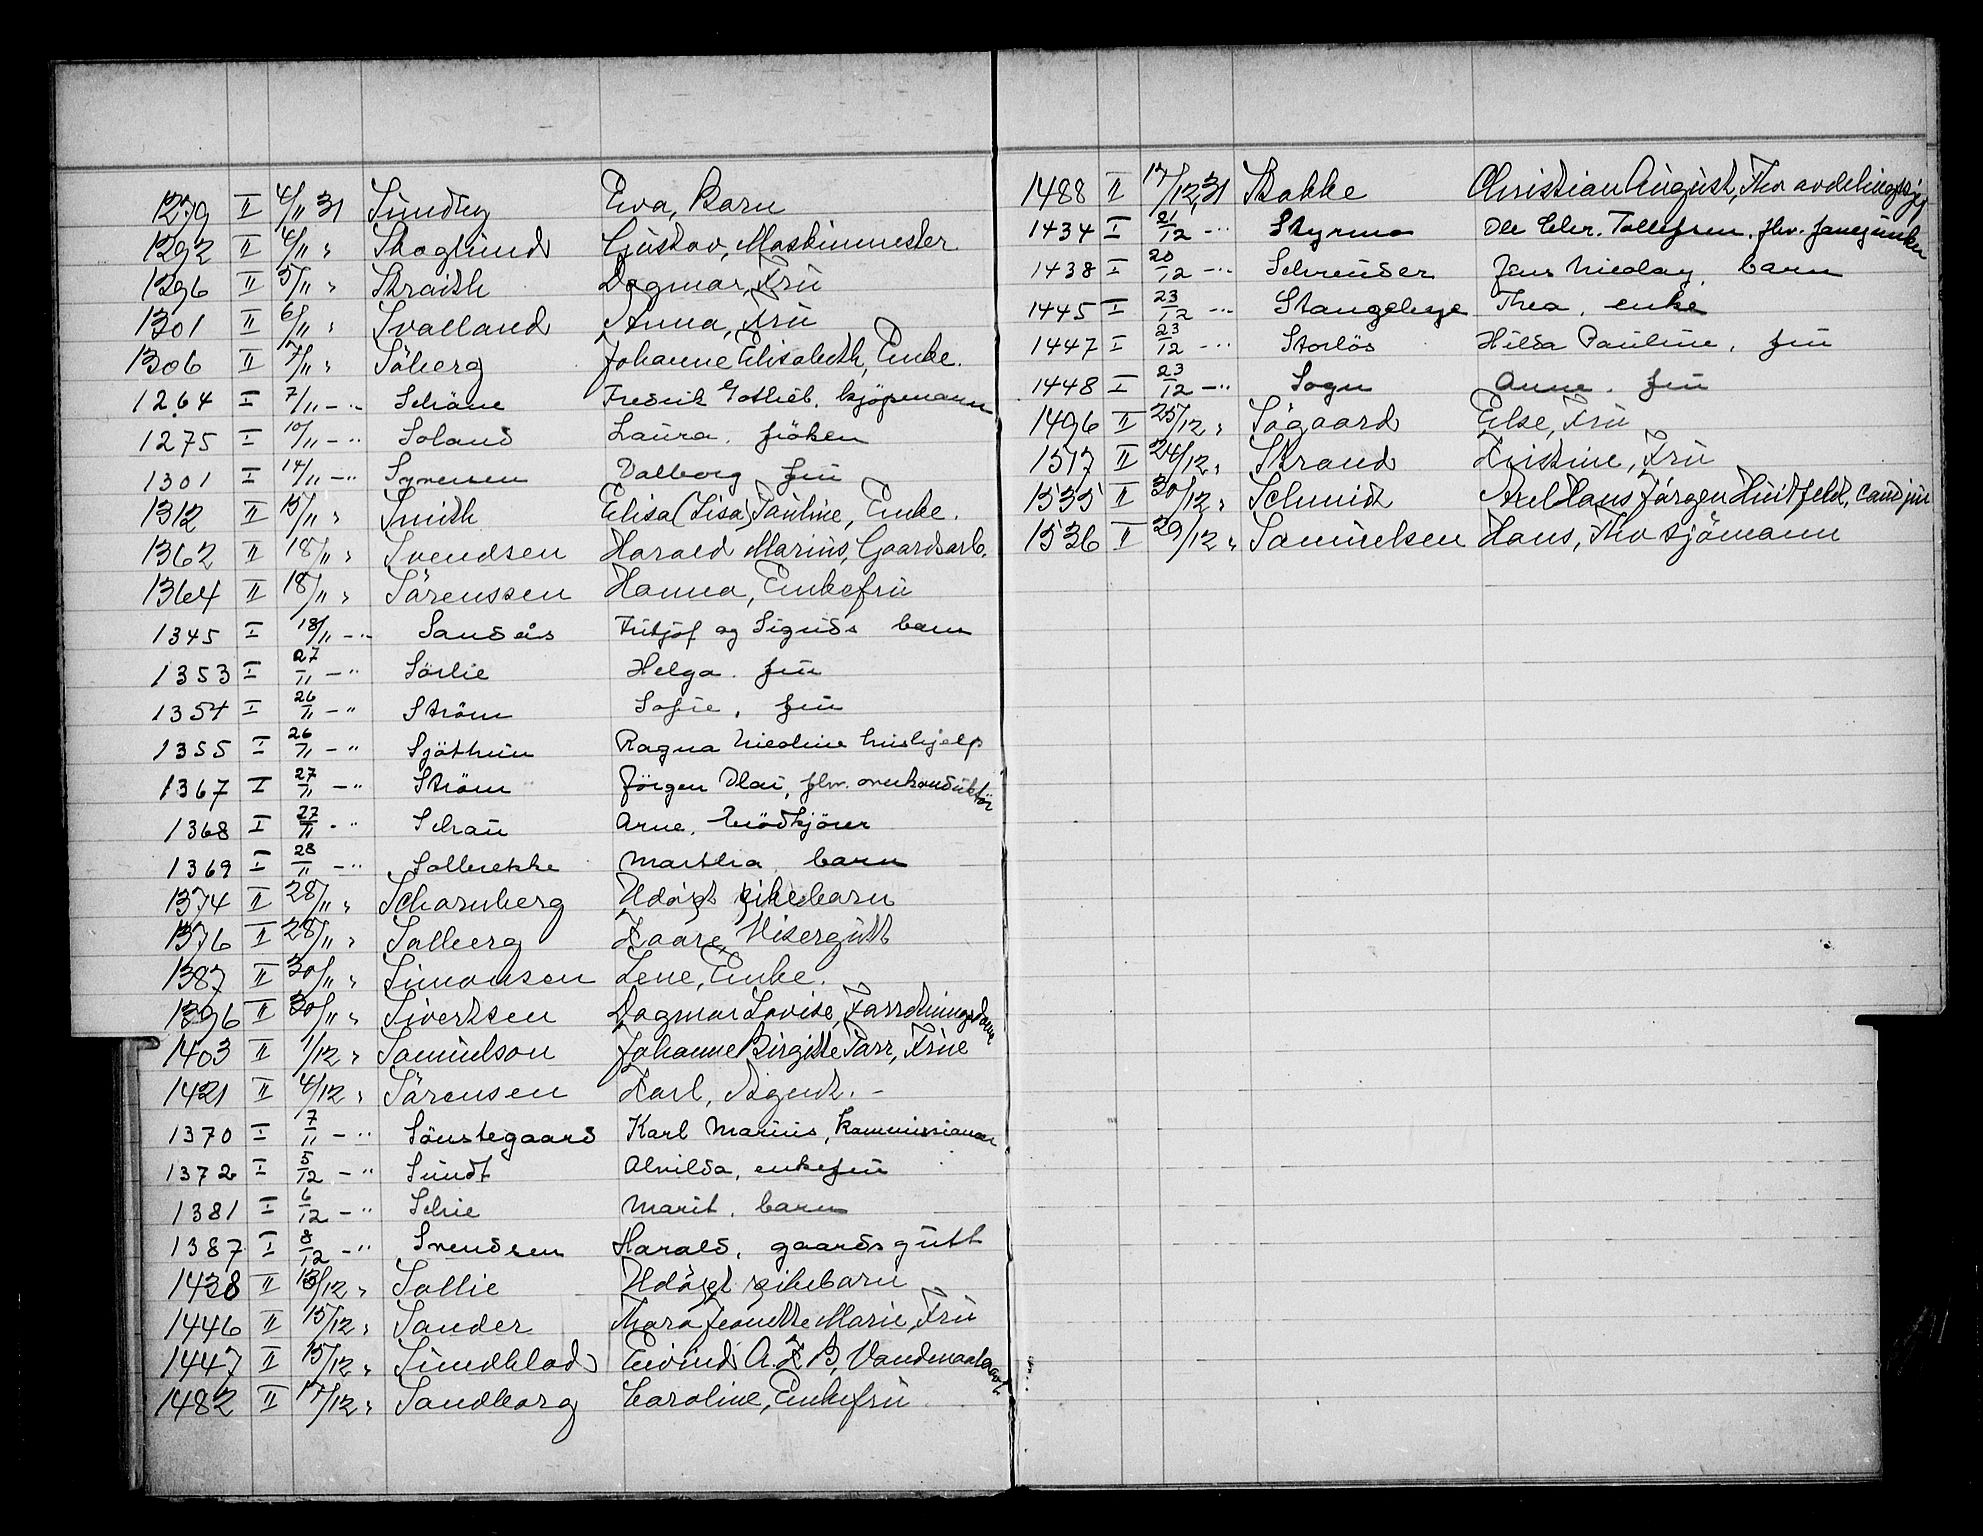 1279 II 4/11 31 Sundby Eva, Barn
1292 II 4/11 " Skoglund Gustav, Maskinmester
1296 II 5/11 " Straith Dagmar, Fru
1301 II 6/11 " Svalland Anna, Fru
1306 II 7/11 " Söberg Johanne Elisabeth, Enke.
1264 I 7/11 - " Schöne Fredrik Gotlieb. kjöpmann
1275 I 10/11 - " Soland Laura. fröken
1301 I 14/11 - " Syversen Valborg fru
1312 II 15/11 " Smith Elisa (Lisa) Pauline, Enke.
1362 II 18/11 " Svendsen Harald Marius, Gaardsarb.
1364 II 18/11 " Sörenssen Hanna, Enkefru
1345 I 18/11 - " Sandås Fritjof og Sigrids barn
1353 I 27/11 - " Sörlie Helga. fru
1354 I 26/11 - " Ström Sofie, fru
1355 I 26/11 - " Sjöthun Ragna Nicoline hushjelp
1367 I 27/11 - " Ström Jörgen Olai, fhv. overkonduktör
1368 I 27/11 - " Schau Arne. brödkjörer
1369 I 28/11 - " Solbrekke Martha barn
1374 II 28/11 " Scharnberg Udöpt pikebarn
1376 II 28/11 " Solberg Kaare, Visergutt
1387 II 30/11 " Simonsen Lene, Enke.
1396 II 30/11 " Sivertsen Dagmar Lovise, Forretningsdame
1403 II 1/12 " Samuelson Johanne Birgitte Parr, Frue
1421 II 4/12 " Sörensen Karl, Agent. -
1370 I 7/11 - " Sönstegaard Karl Marius, kommissionær
1372 I 5/12 - " Sundt Alvilda, enkefru
1381 I 6/12 - " Schie Marit. barn
1387 I 8/12 - " Svendsen Harald, gaardsgutt
1438 II 13/12 " Sollie Udöpt pikebarn
1446 II 15/12 " Sander Thora Jeanette Marie, Fru
1447 II 15/12 " Sundblad Eivind A. K B, Vandmaalerarb.
1482 II 17/12 " Sandborg Caroline, Enkefru
1488 II 17/12 31 Stokke Christian August, Fhv avdelingssjef
1434 I 21/12 - " Styrmo Ole Chr. Tollefsen. fhv.
1438 I 20/12 - " Schreuder Jens Nicolay barn
1445 I 23/12 - " Stangebye Thea. enke
1447 I 23/12 - " Storlös Hilda Pauline, fru
1448 I 23/12 - " Sogn Anne. fru
1496 II 25/12 " Sögaard Else, Fru
1517 II 24/12 " Strand Kristine, Fru
1535 II 30/12 " Schmidt Axel Hans Jörgen Huitfeldt, Cand jur
1536 II 29/12 " Samuelsen Hans, Fhv sjömann